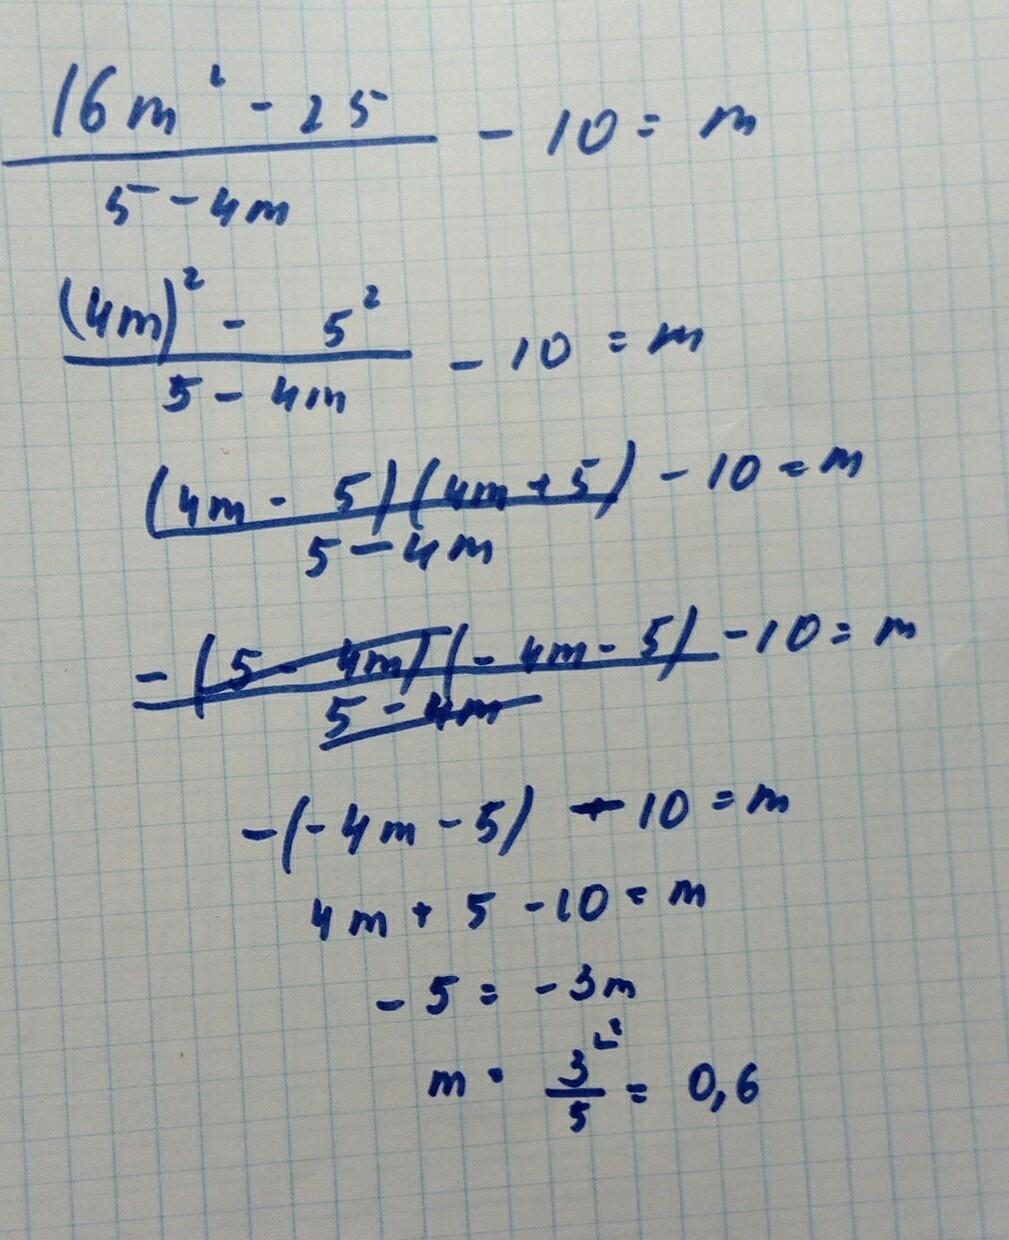 16m² - 25 / 5 - 4m - 10 = m
(4m)² - 5² / 5 - 4m - 10 = m
(4m - 5)(4m + 5) / 5 - 4m - 10 = m
-(5 - 4m)(-4m - 5) / 5 - 4m - 10 = m
-(-4m - 5) - 10 = m
4m + 5 - 10 = m
-5 = -3m
m = 3/5 = 0,6